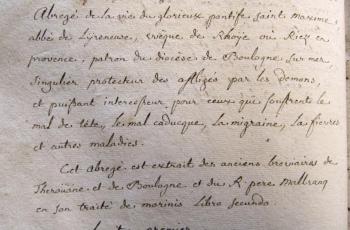 Abregé de la vie du glorieux pontife saint maxime,
abbé de Lyreneuse, evêque de Rhoïe ou Riez en
provence, patron du diocèse de Boulogne sur mer,
singulier protecteur des affligés par les demons,
et puissant intercesseur pour ceux qui souffrent le
mal de tête, le mal caducque, la migraine, la fievres
et autres maladies.
Cet Abregé est extrait des anciens breviaires de
Therouänne et de Boulogne et du R. pere Malbranq
en son traité de morinis Libro secundo.